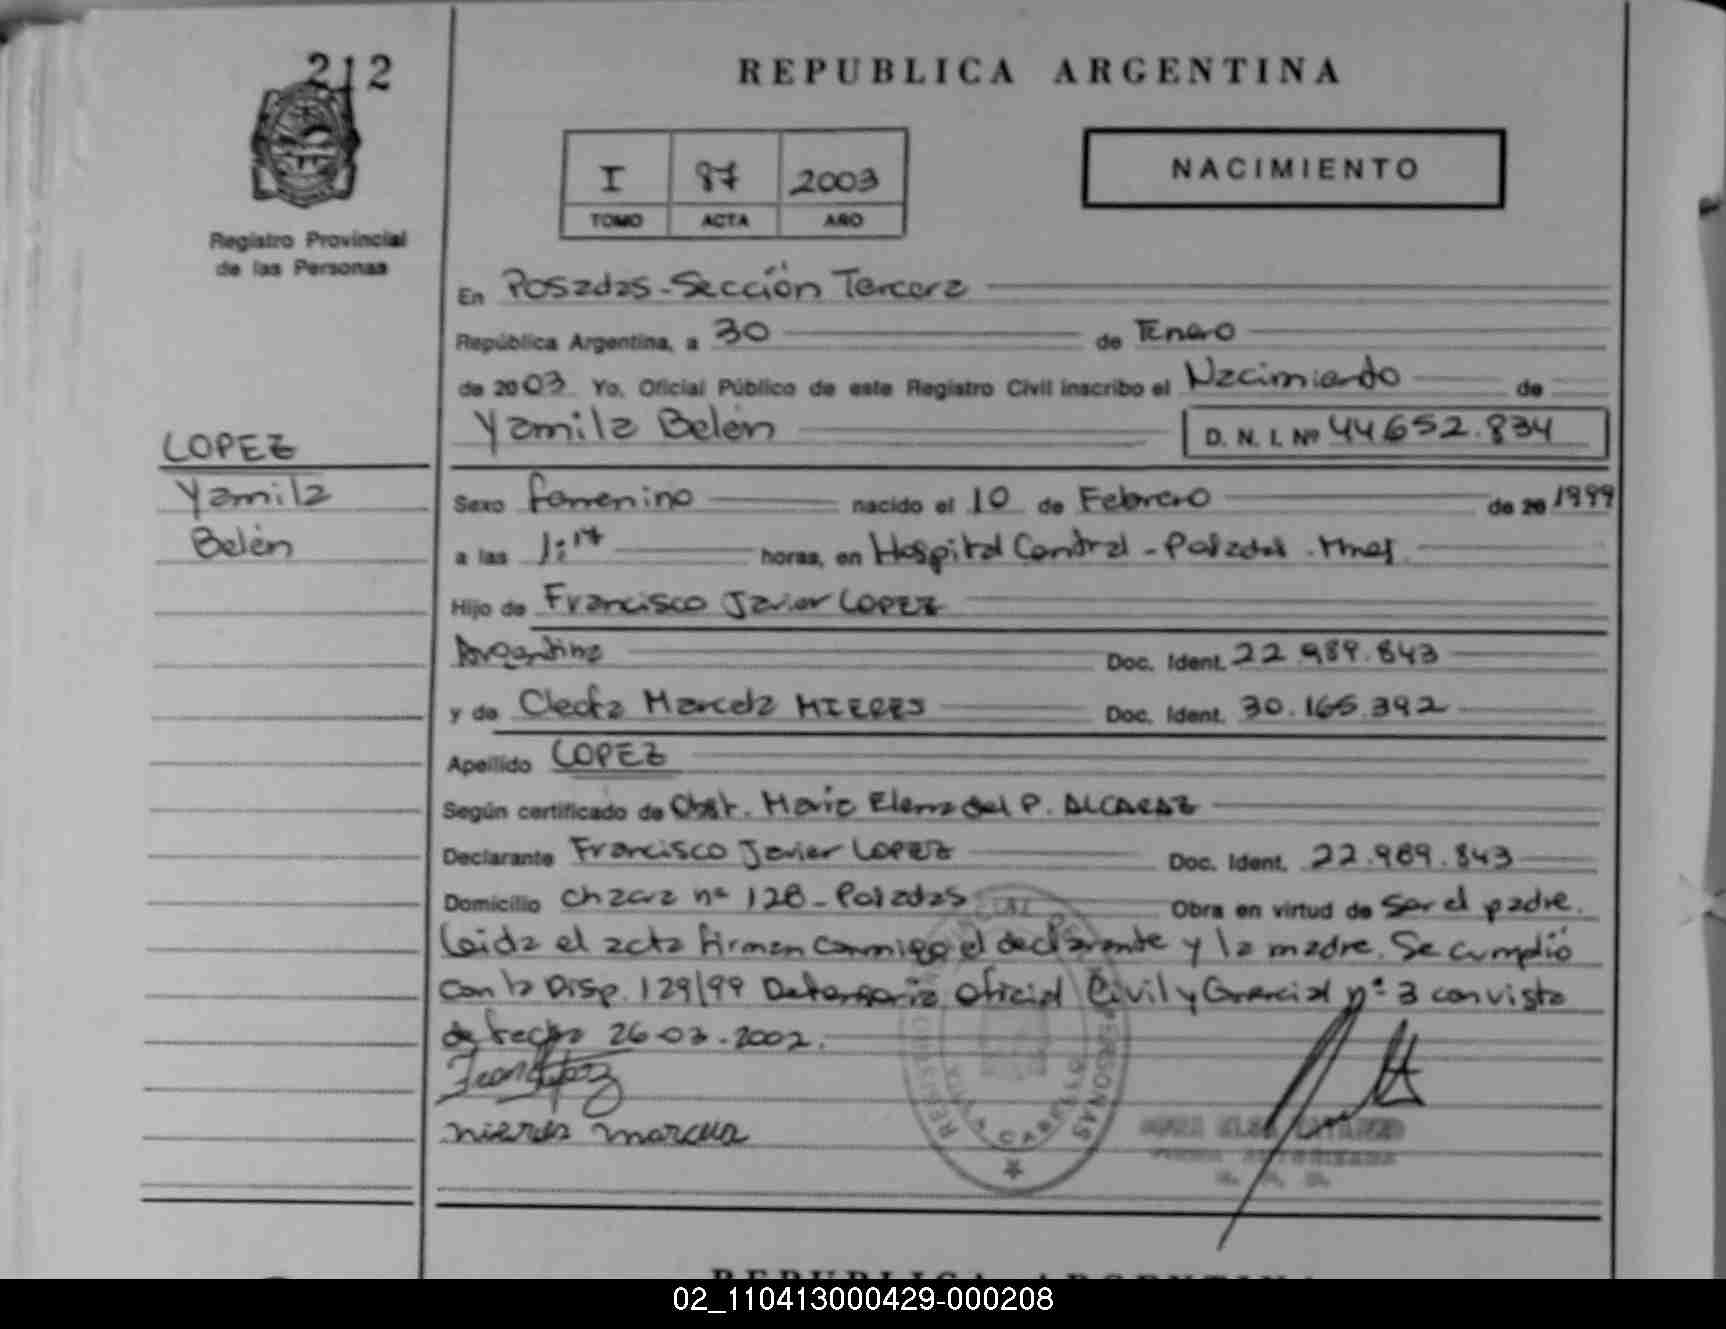 212
REPUBLICA ARGENTINA
I 87 2003
TOMO ACTA AÑO
NACIMIENTO
Registro Provincial
de las Personas
En Posadas-Sección Tercera
República Argentina, a 30 de Enero
de 2003 Yo, Oficial Público de este Registro Civil inscribo el Nacimiento de
Yamila Belén D. N. I. Nº 44652.834
LOPEZ
Yamila
Belén
Sexo femenino nacido el 10 de Febrero de 20 1999
a las 1:17 horas, en Hospital Central - Posadas - Mnes
Hijo de Francisco Javier LOPEZ
Argentina Doc. Ident. 22.989.843
y de Cleofa Marcela MIERES Doc. Ident. 30.165.392
Apellido LOPEZ
Según certificado de Obst. Maria Elena del P. ALCARAZ
Declarante Francisco Javier LOPEZ Doc. Ident. 22.989.843
Domicilio Chacra nº 128 - Posadas Obra en virtud de ser el padre.
Leida el acta firman conmigo el declarante y la madre. Se cumplió
con la Disp. 129/99 Defensoria Oficial Civil y Comercial nº 3 con vista
de fecha 26-03-2002.
Mieres Marcela
REPUBLICA ARGENTINA
02_110413000429-000208